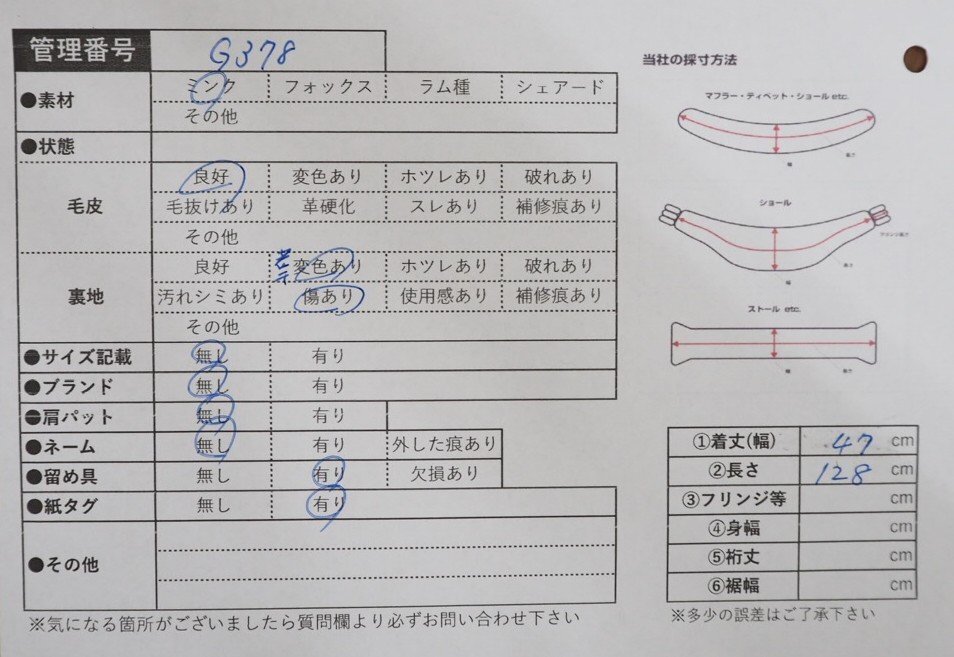 管理番号 G378
当社の採寸方法
●素材 ミンク フォックス ラム種 シェアード
その他
●状態
毛皮 良好 変色あり ホツレあり 破れあり
毛抜けあり 革硬化 スレあり 補修痕あり
その他
裏地 良好 変色あり ホツレあり 破れあり
汚れシミあり 傷あり 使用感あり 補修痕あり
その他
●サイズ記載 無し 有り
●ブランド 無し 有り
●肩パット 無し 有り
●ネーム 無し 有り 外した痕あり
●留め具 無し 有り 欠損あり
●紙タグ 無し 有り
●その他
※気になる箇所がございましたら質問欄より必ずお問い合わせ下さい
マフラー・ティペット・ショール etc.
幅
長さ
ショール
フリンジ長さ
長さ
幅
ストール etc.
幅
長さ
①着丈(幅) 47 cm
②長さ 128 cm
③フリンジ等 cm
④身幅 cm
⑤裄丈 cm
⑥裾幅 cm
※多少の誤差はご了承下さい